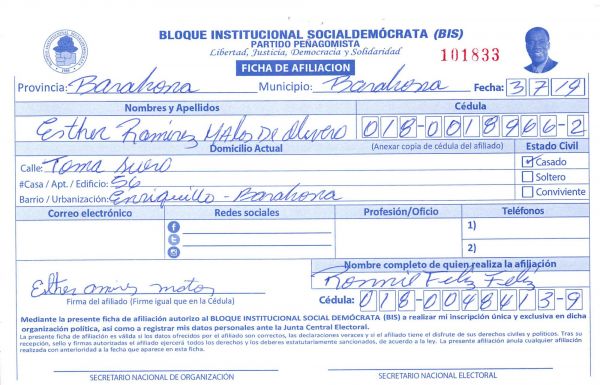 BLOQUE INSTITUCIONAL SOCIALDEMÓCRATA (BIS)
PARTIDO PEÑAGOMISTA
Libertad, Justicia, Democracia y Solidaridad
101833
FICHA DE AFILIACION
Provincia: Barahona Municipio: Barahona Fecha: 3/7/19
Nombres y Apellidos Cédula
Esther Ramirez Matos De Olivero 018-0018966-2
Domicilio Actual (Anexar copia de cédula del afiliado) Estado Civil
Calle: Toma Suero Casado
#Casa / Apt. / Edificio: 56 Soltero
Barrio / Urbanización: Enriquillo - Barahona Conviviente
Correo electrónico Redes sociales Profesión/Oficio Teléfonos
1)
2)
Nombre completo de quien realiza la afiliación
Ronnie Feliz Feliz
Esther matos
Firma del afiliado (Firme igual que en la Cédula) Cédula: 018-0048413-9
Mediante la presente ficha de afiliación autorizo al BLOQUE INSTITUCIONAL SOCIAL DEMÓCRATA (BIS) a realizar mi inscripción única y exclusiva en dicha
organización política, así como a registrar mis datos personales ante la Junta Central Electoral.
La presente ficha de afiliación es válida si los datos ofrecidos por el afiliado son correctos, las declaraciones veraces y si el afiliado tiene el disfrute de sus derechos civiles y políticos. Tras su
recepción, sello y firmas autorizadas el afiliado ejercerá todos los derechos y los deberes estatutariamente sancionados, de acuerdo a la ley. La presente afiliación anula cualquier afiliación
realizada con anterioridad a la fecha que aparece en esta ficha.
SECRETARIO NACIONAL DE ORGANIZACIÓN SECRETARIO NACIONAL ELECTORAL